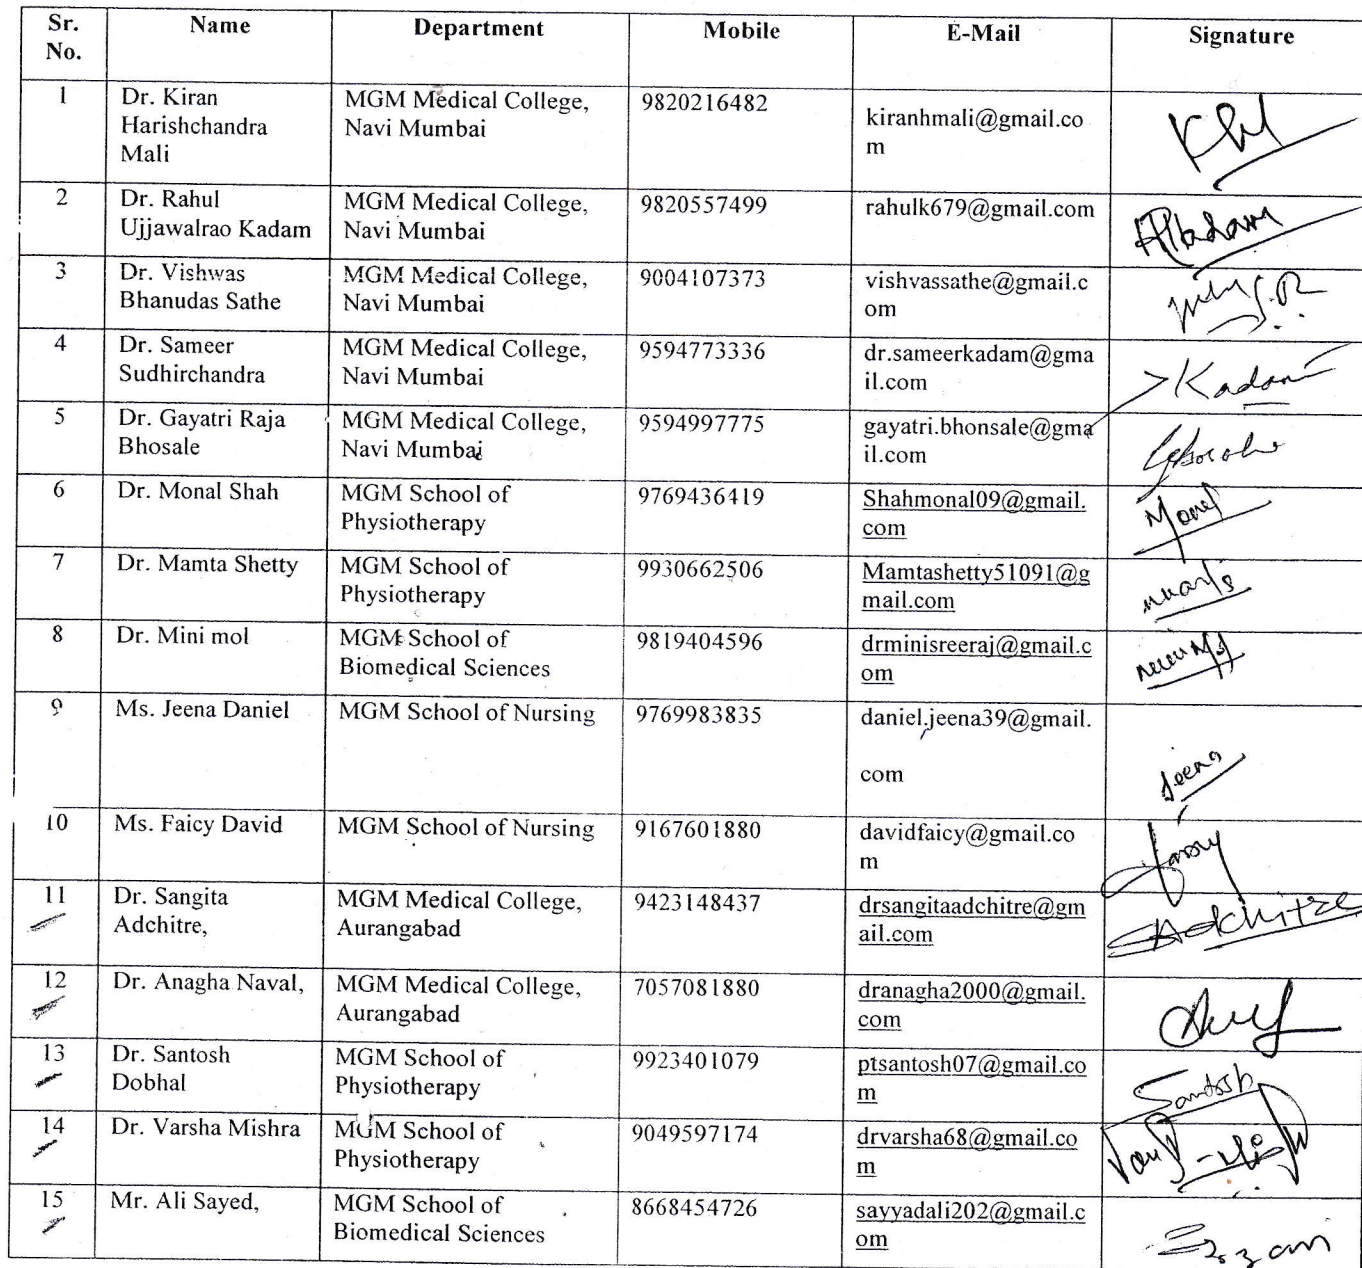 Sr. No. Name Department Mobile E-Mail Signature
1 Dr. Kiran Harishchandra Mali MGM Medical College, Navi Mumbai 9820216482 kiranhmali@gmail.com
2 Dr. Rahul Ujjawalrao Kadam MGM Medical College, Navi Mumbai 9820557499 rahulk679@gmail.com
3 Dr. Vishwas Bhanudas Sathe MGM Medical College, Navi Mumbai 9004107373 vishvassathe@gmail.com
4 Dr. Sameer Sudhirchandra MGM Medical College, Navi Mumbai 9594773336 dr.sameerkadam@gmail.com Kadam
5 Dr. Gayatri Raja Bhosale MGM Medical College, Navi Mumbai 9594997775 gayatri.bhonsale@gmail.com
6 Dr. Monal Shah MGM School of Physiotherapy 9769436419 Shahmonal09@gmail.com Monal
7 Dr. Mamta Shetty MGM School of Physiotherapy 9930662506 Mamtashetty51091@gmail.com
8 Dr. Mini mol MGM School of Biomedical Sciences 9819404596 drminisreeraj@gmail.com
9 Ms. Jeena Daniel MGM School of Nursing 9769983835 daniel.jeena39@gmail.com Jeena
10 Ms. Faicy David MGM School of Nursing 9167601880 davidfaicy@gmail.com
11 Dr. Sangita Adchitre, MGM Medical College, Aurangabad 9423148437 drsangitaadchitre@gmail.com SAdchitre
12 Dr. Anagha Naval, MGM Medical College, Aurangabad 7057081880 dranagha2000@gmail.com
13 Dr. Santosh Dobhal MGM School of Physiotherapy 9923401079 ptsantosh07@gmail.com Santosh
14 Dr. Varsha Mishra MGM School of Physiotherapy 9049597174 drvarsha68@gmail.com
15 Mr. Ali Sayed, MGM School of Biomedical Sciences 8668454726 sayyadali202@gmail.com